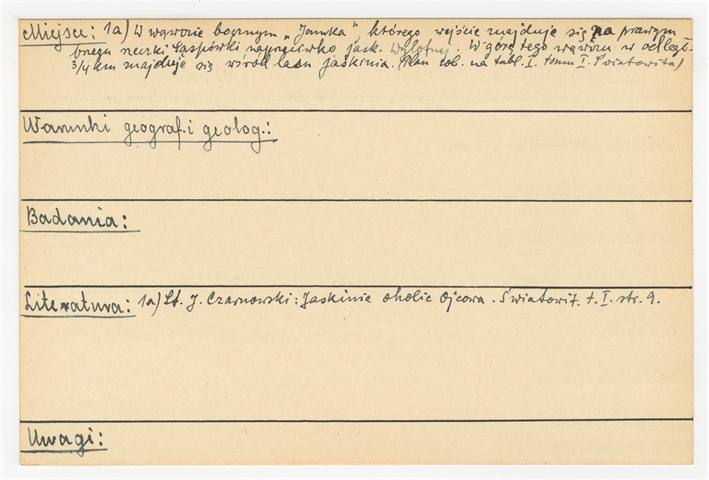 Miejsce: 1a) W wąwozie bocznym „Jamka" którego wejście znajduje się na prawym
brzegu rzeczki Sąspówki naprzeciwko jask. Wylotnej. W górę tego wąwozu w odległ.
3/4 km znajduje się wśród lasu jaskinia. Plan zob. na tabl. I. tomu I. Światowita)
Warunki geograf. i geolog.:
Badania:
Literatura: 1a) St. J. Czarnowski: Jaskinie okolic Ojcowa. Światowit. t. I. str. 9.
Uwagi: